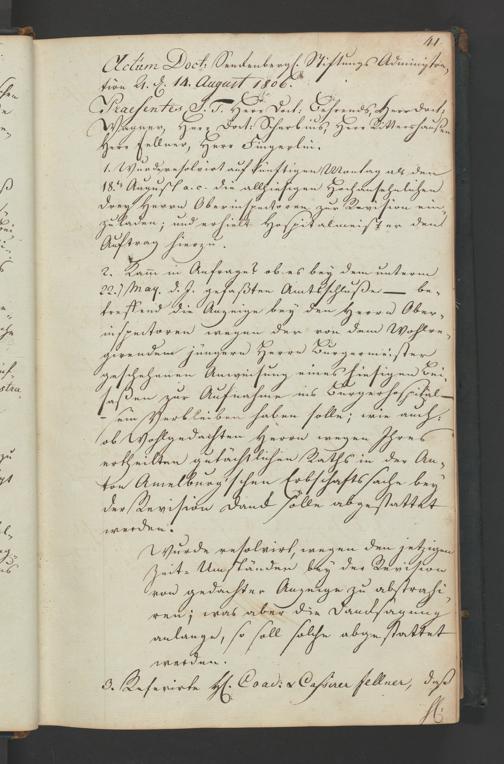 41
Actum Doct: Senckenberg. Stiftungs Administra,
tion 21. d. 14. August 1806.
Praesentes S. T. Herr Doct. Behrends, Herr Doct.
Wagner, Herr Doct: Scherbius, Herr Rittershausen
Herr Fellner, Herr Fingerlin.
1. Wurde resolvirt auf künftigen Montag als den
18.ten August a. c. die allhiesigen Hochansehnlichen
drey Herrn Oberinspectoren zur Revision ein,
zuladen; und erhielt Hospitalmeister den
Auftrag hierzu.
2. Kam in Anfrage: ob es bey dem unterm
22.) May. d. J. gefaßten Amtsschlusse — be,
treffend die Anzeige bey den Herrn Ober,
inspectoren wegen der von dem Wohlre,
gierenden jüngern Herrn Burgermeister
geschehenen Anweisung eines hiesigen Bei,
saßen zur Aufnahme ins Burgerhospital —
– ein Verbleiben haben solle; wie auch:
ob Wohlgedachten Herrn wegen Ihres
ertheilten gutächtlichen Raths in der An,
ton Amelburgschen Erbschaftssache bey
der Revision Dank solle abgestattet
werden.
Wurde resolvirt, wegen den jetzigen
Zeit-Umständen bey der Revision
von gedachter Anzeige zu abstrahi,
ren; was aber die Danksagung
anlange, so soll solche abgestattet
werden.
3. Referirte H. Coad: & Cassirer Fellner, daß